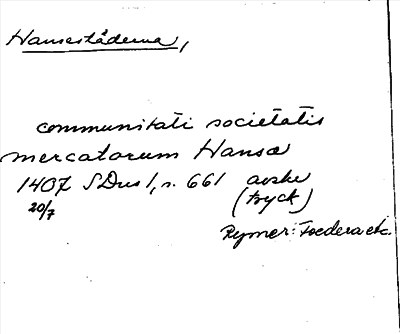 Hansestäderna,
communitati societatis
mercatorum Hansæ
1407 SDns 1, s. 661 avskr
20/7 (tryck)
Rymer: Foedera etc.